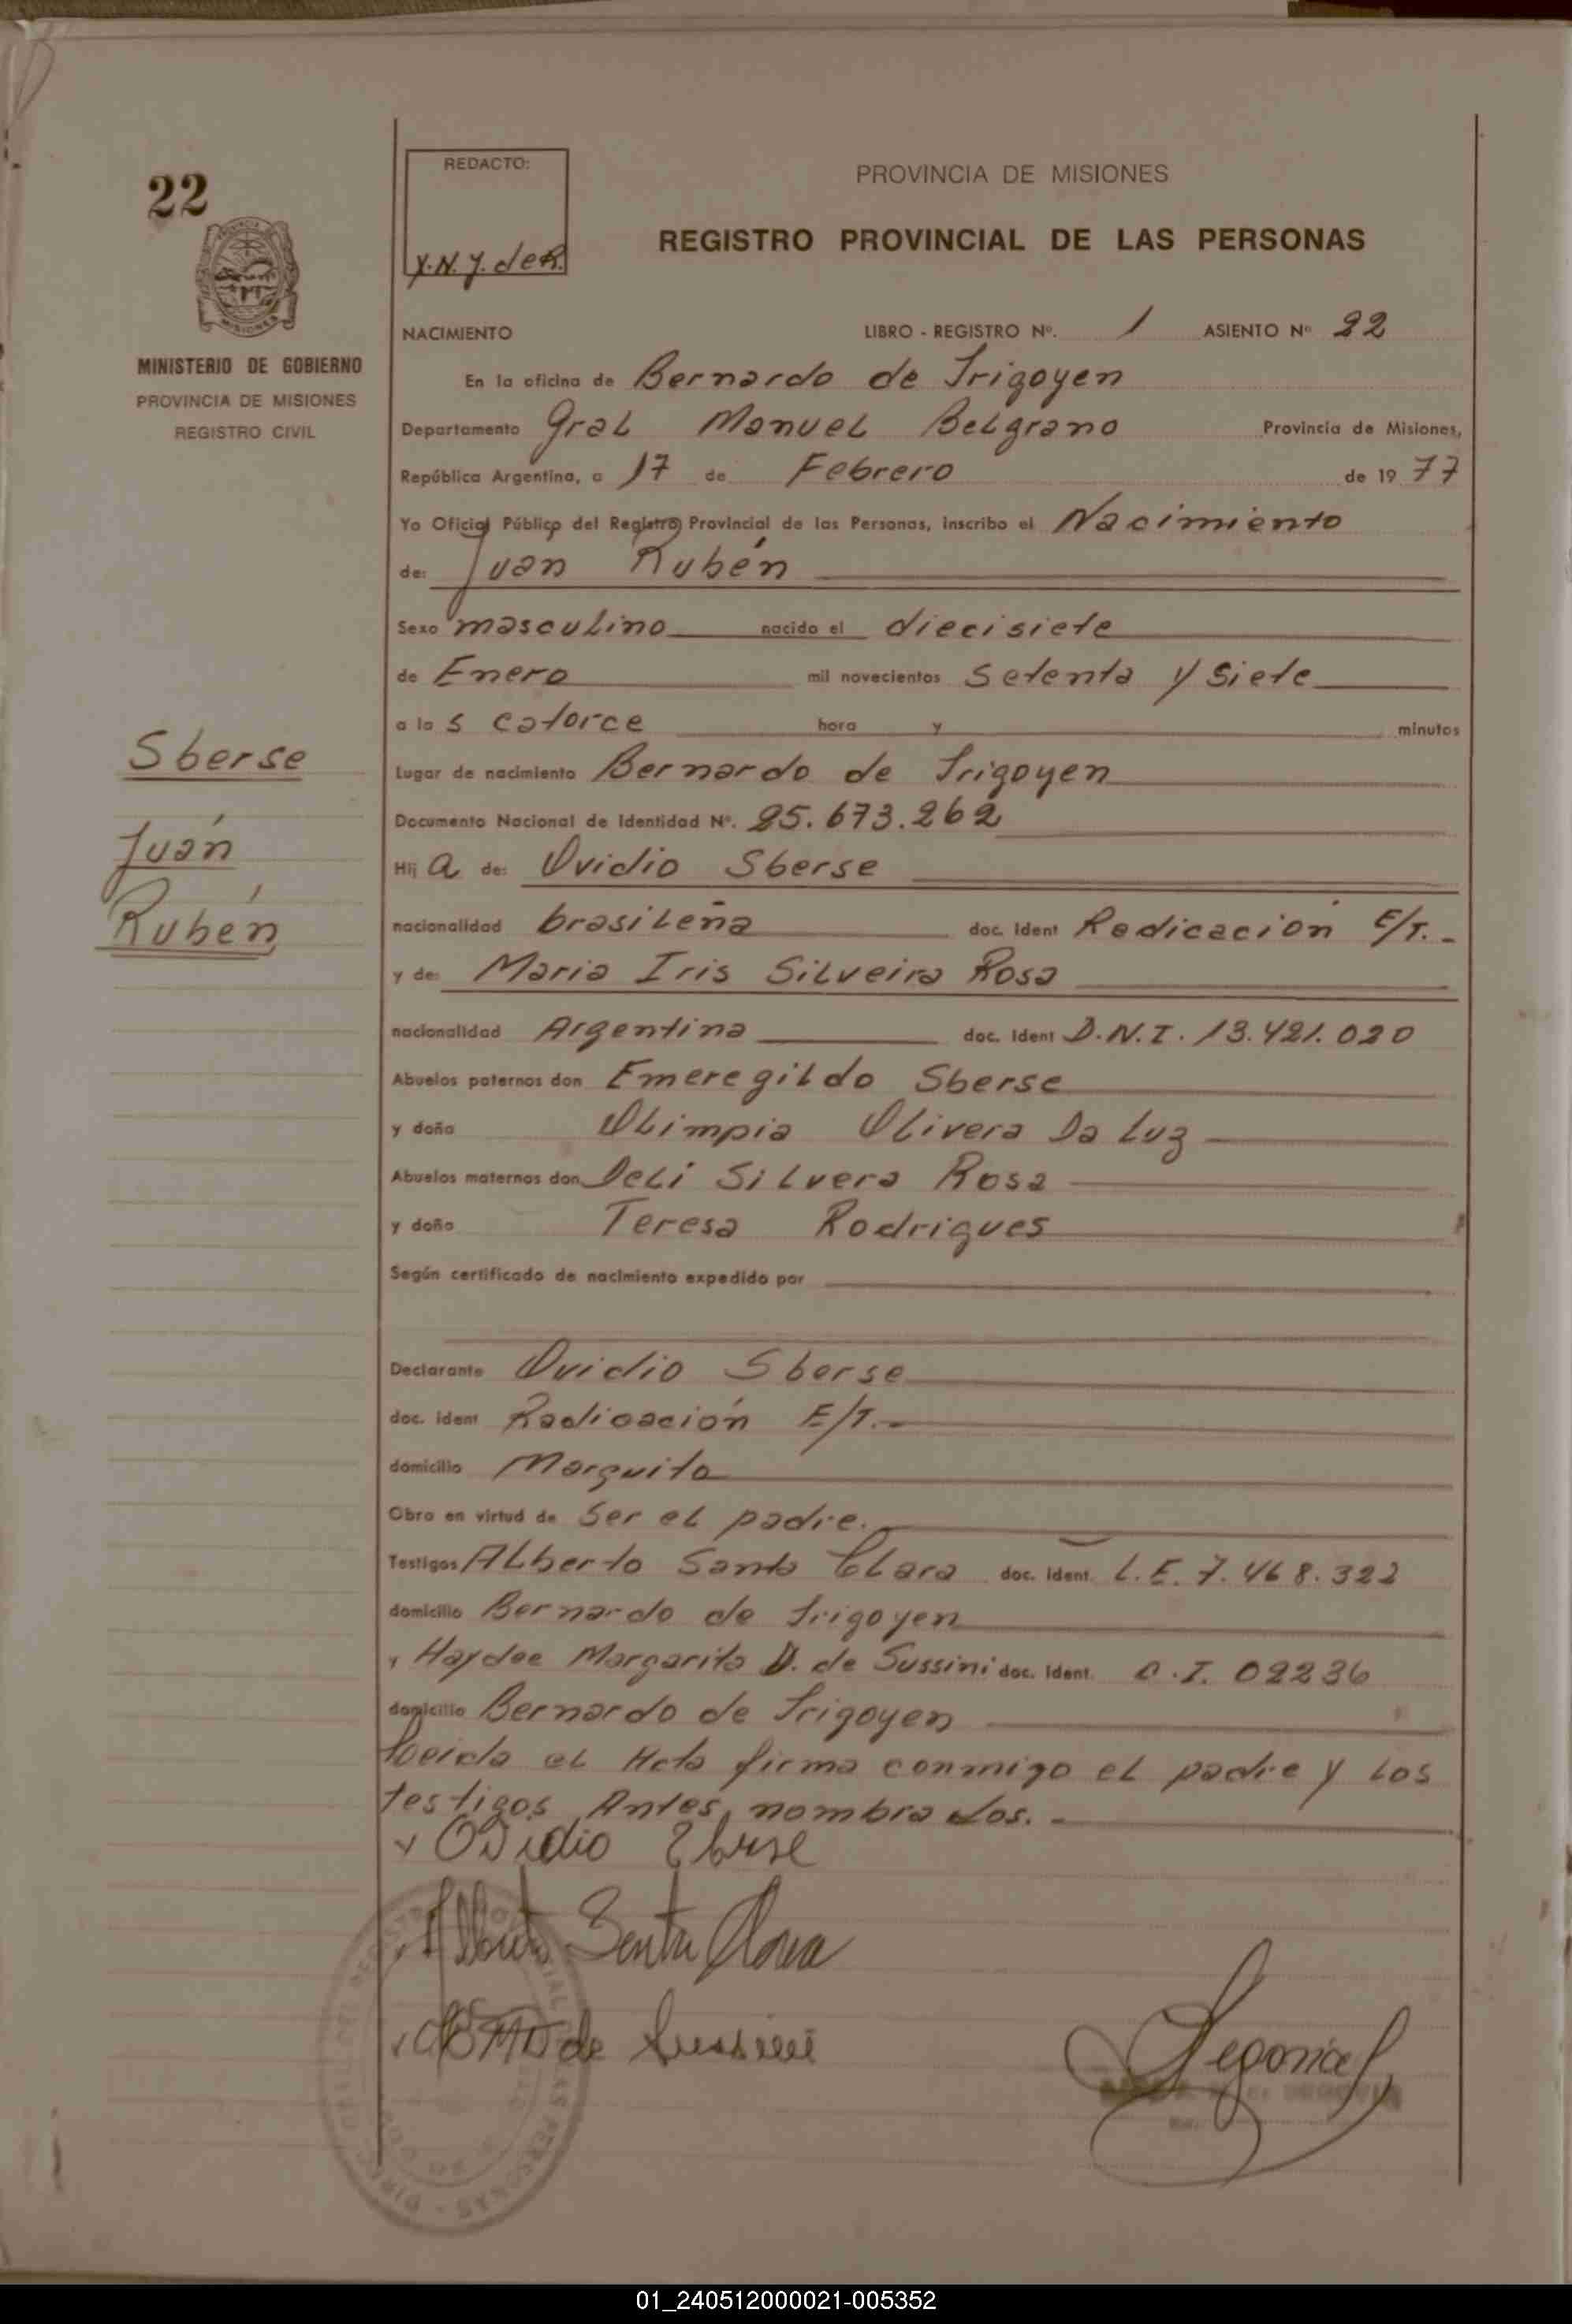 22
REDACTO:
Y.N.Y. de R.
PROVINCIA DE MISIONES
REGISTRO PROVINCIAL DE LAS PERSONAS
MISIONES
MINISTERIO DE GOBIERNO
PROVINCIA DE MISIONES
REGISTRO CIVIL
NACIMIENTO LIBRO - REGISTRO Nº. 1 ASIENTO Nº 22
En la oficina de Bernardo de Irigoyen
Departamento Gral Manuel Belgrano Provincia de Misiones,
República Argentina, a 17 de Febrero de 19 77
Yo Oficial Público del Registro Provincial de las Personas, inscribo el Nacimiento
de: Juan Rubén
Sexo masculino nacido el diecisiete
de Enero mil novecientos setenta y siete
a la s catorce hora y minutos
Sberse
Juán
Rubén
Lugar de nacimiento Bernardo de Irigoyen
Documento Nacional de Identidad Nº. 25.673.262
Hij a de: Ovidio Sberse
nacionalidad brasileña doc. ident Radicación E/T.-
y de: Maria Iris Silveira Rosa
nacionalidad Argentina doc. ident D.N.I. 13.421.020
Abuelos paternos don Emeregildo Sberse
y doña Olimpia Olivera Da Luz
Abuelos maternos don Deli Silvera Rosa
y doña Teresa Rodrigues
Según certificado de nacimiento expedido por
Declarante Ovidio Sberse
doc. ident Radicación E/T.-
domicilio Marquita
Obra en virtud de ser el padre.
Testigos Alberto Santa Clara doc. ident. L.E. 7.468.322
domicilio Bernardo de Irigoyen
y Haydee Margarita D. de Sussini doc. ident. C.I. 02236
domicilio Bernardo de Irigoyen
Leida el Acta firma conmigo el padre y los
testigos Antes nombrados.-
Ovidio Sberse
Alberto Santa Clara
de Sussini